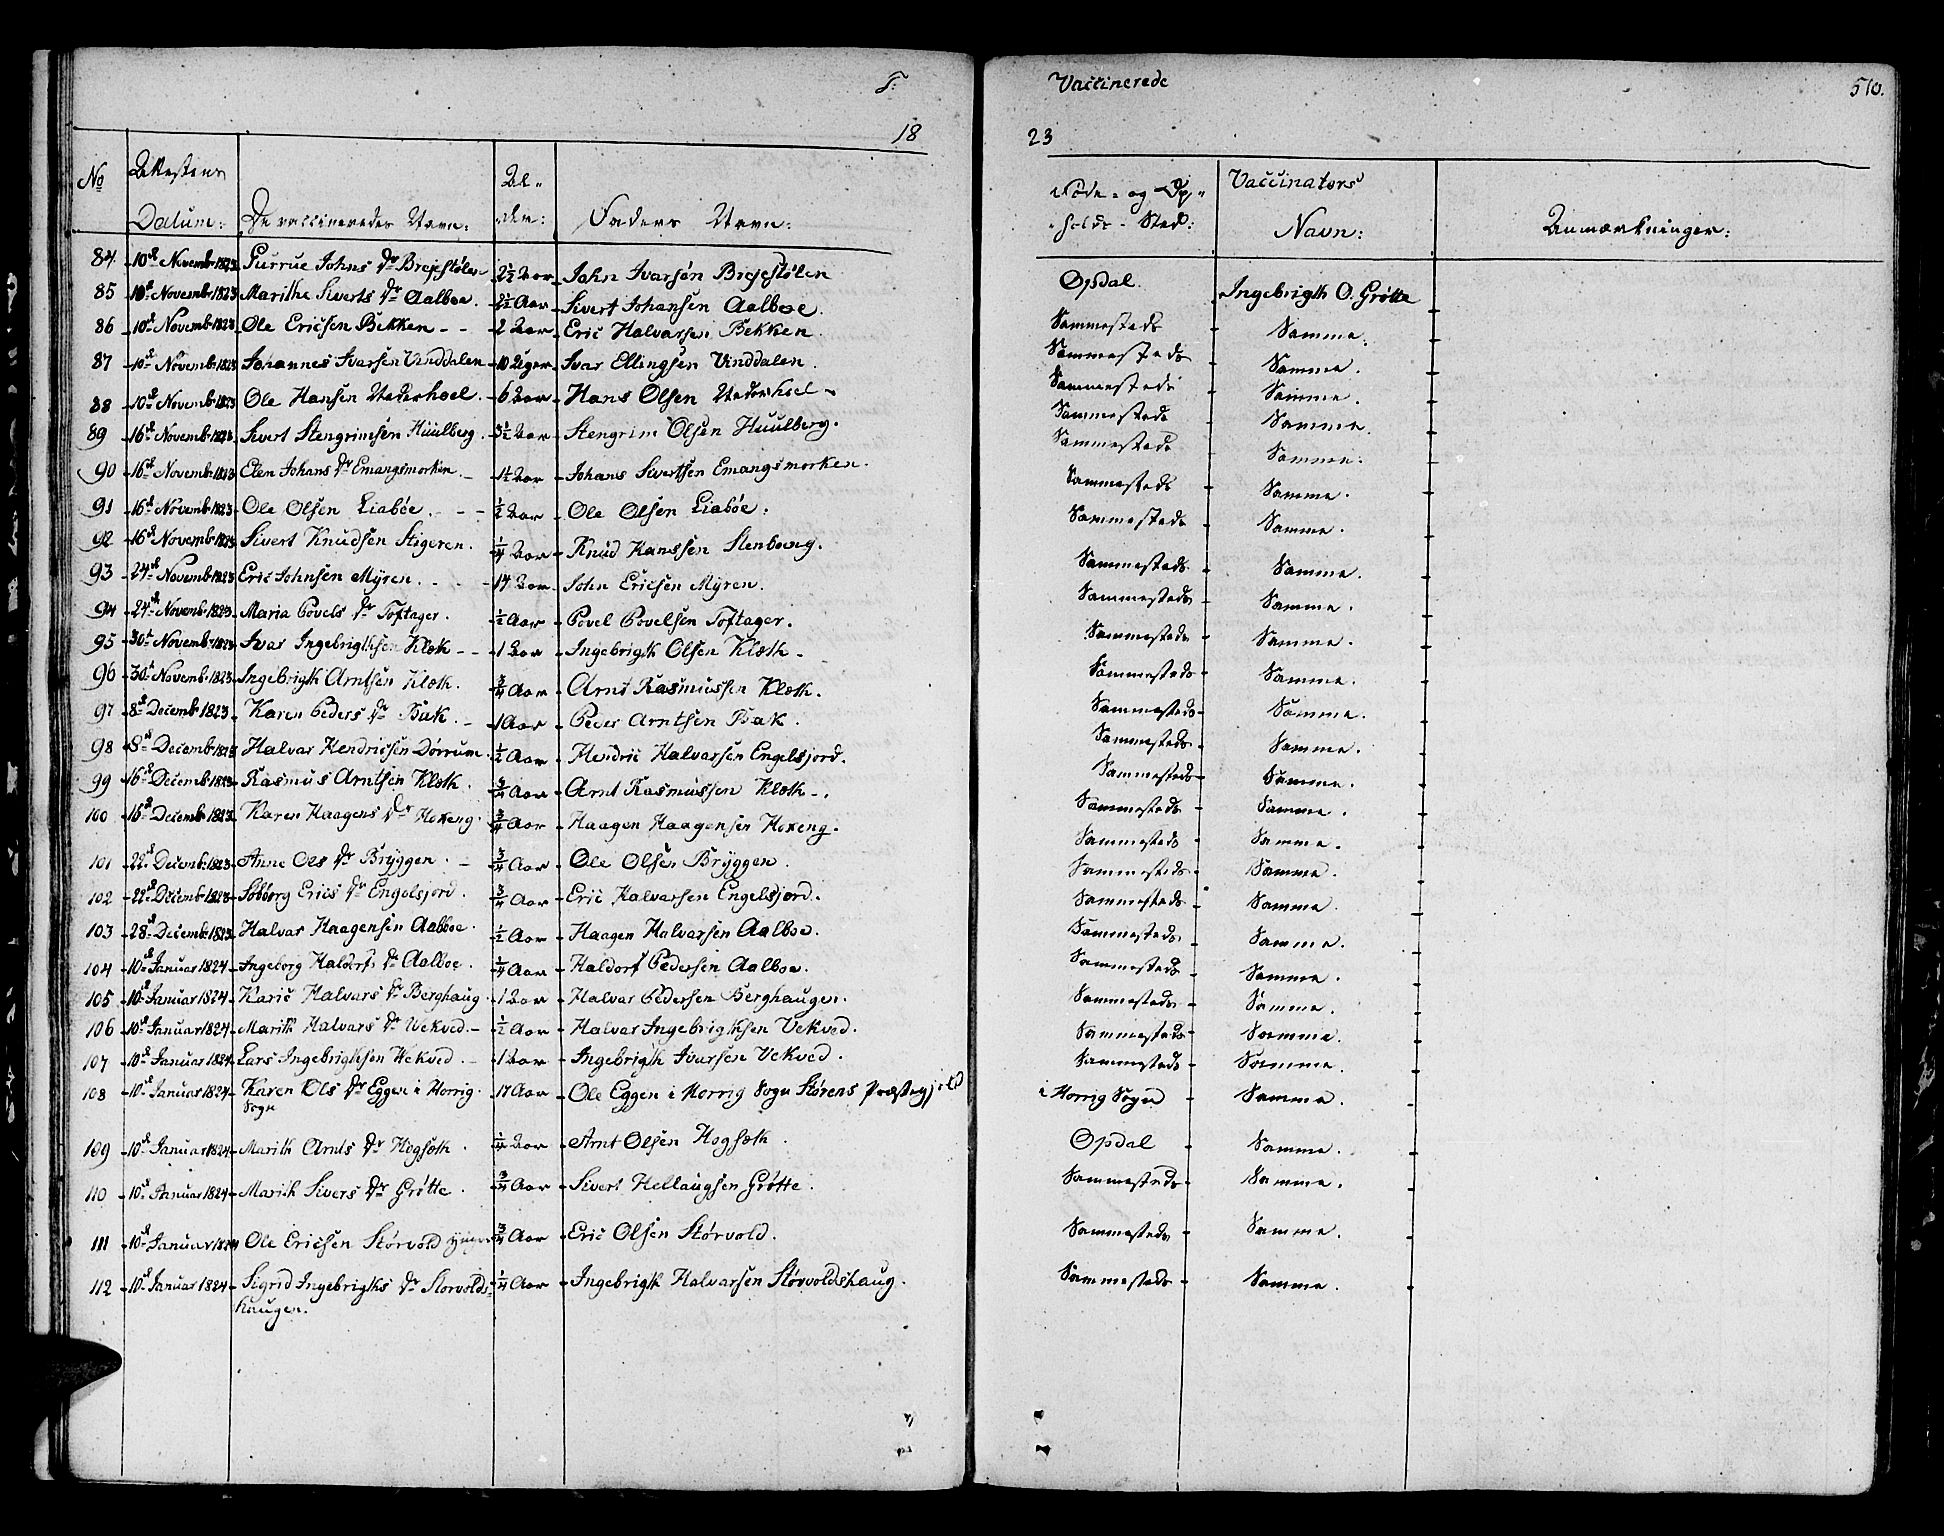 F. Vaccinerede 510.
18 23
No Attestens Datum: De vaccineredes Navn: Alder: Faders Navn: Føde- og Opholds-Sted: Vaccinators Navn: Anmærkninger:
84 10d Novemb 1823 Gurrue Johns Dr Brejestølen 2½ Aar John Ivarsen Brejestølen Opdal. Ingebrigth O. Grøtte
85 10d Novemb 1823 Marithe Siverts Dr Aalboe. 2½ Aar Sivert Johansen Aalboe. Sammesteds Samme.
86 10d Novemb 1823 Ole Ericsen Bekken 2 Aar Eric Halvarsen Bekken. Sammesteds Samme.
87 10d Novemb 1823 Johannes Ivarsen Vinddalen 10 Uger Ivar Ellingsen Vinddalen. Sammesteds Samme.
88 10d Novemb 1823 Ole Hansen Nederhoel. 6 Aar Hans Olsen Nederhoel Sammesteds Samme.
89 16d Novemb 1823 Sivert Stengrimsen Huulberg. 3½ Aar Stengrim Olsen Huulberg. Sammesteds Samme.
90 16d Novemb 1823 Elen Johans Dr Emangsmorken. 1½ Aar Johans Sivertsen Emangsmorken. Sammesteds Samme.
91 16d Novemb 1823 Ole Olsen Liabøe. ½ Aar Ole Olsen Liabøe. Sammesteds Samme.
92 16d Novemb 1823 Sivert Knudsen Stigeren. ¼ Aar Knud Hanssen Stenboeng. Sammesteds Samme.
93 24d Novemb 1823 Eric Johnsen Myren. 14 Aar John Ericsen Myren. Sammesteds Samme.
94 24d Novemb 1823 Maria Povels Dr Toftager. ½ Aar Povel Povelsen Toftager. Sammesteds Samme.
95 30d Novemb 1823 Ivar Ingebrigthsen Klæk 1 Aar Ingebrigth Olsen Klæth Sammesteds Samme.
96 30d Novemb 1823 Ingebrigth Arntsen Klæth. ¾ Aar Arnt Rasmussen Klæth. Sammesteds Samme.
97 8d Decemb 1823 Karen Peders Dr Bak. 1 Aar Peder Arntsen Bak. Sammesteds Samme.
98 8d Decemb 1823 Halvar Hendricsen Dørrum ½ Aar Hendric Halvarsen Engelsjord. Sammesteds Samme.
99 16d Decemb 1823 Rasmus Arntsen Klæth. ¾ Aar Arnt Rasmussen Klæth. Sammesteds Samme.
100 16d Decemb 1823 Karen Haagens Dr Hoxeng. ¾ Aar Haagen Haagensen Hoxeng. Sammesteds Samme.
101 22d Decemb 1823 Anne Ols Dr Bryggen. ¾ Aar Ole Olsen Bryggen. Sammesteds Samme.
102 22d Decemb 1823 Søborg Erics Dr Engelsjord. ¾ Aar Eric Halvarsen Engelsjord. Sammesteds Samme.
103 28d Decemb 1823 Halvar Haagensen Aalboe. ½ Aar Haagen Halvarsen Aalboe. Sammesteds Samme.
104 10d Januar 1824 Ingeborg Haldorfs Dr Aalboe. ¼ Aar Haldorf Pedersen Aalboe. Sammesteds Samme.
105 10d Januar 1824 Karic Halvars Dr Berghaug. 1 Aar Halvar Pedersen Berghaugen. Sammesteds Samme.
106 10d Januar 1824 Marith Halvars Dr Vekved. ½ Aar Halvar Ingebrigthsen Vekved. Sammesteds Samme.
107 10d Januar 1824 Lars Ingebrigthsen Vekved. 1 Aar Ingebrigth Ivarsen Vekved. Sammesteds Samme.
108 10d Januar 1824 Karen Ols Dr Eggen i Horrig 17 Aar Ole Eggen i Horrig Sogn Størens Præstegjeld i Horrig Sogn Samme.
Sogn
109 10d Januar 1824 Marith Arnts Dr Hogsæth. ¼ Aar Arnt Olsen Hogsæth. Opdal Samme.
110 10d Januar 1824 Marith Sivers Dr Grøtte. ¾ Aar Sivert Hellaugsen Grøtte. Sammesteds Samme.
111 10d Januar 1824 Ole Ericsen Størvold ¾ Aar Eric Olsen Størvold. Sammesteds Samme.
112 10d Januar 1824 Sigrid Ingebrigths Dr Storvolds- ¼ Aar Ingebrigth Halvarsen Størvoldshaug. Sammesteds Samme.
haugen.